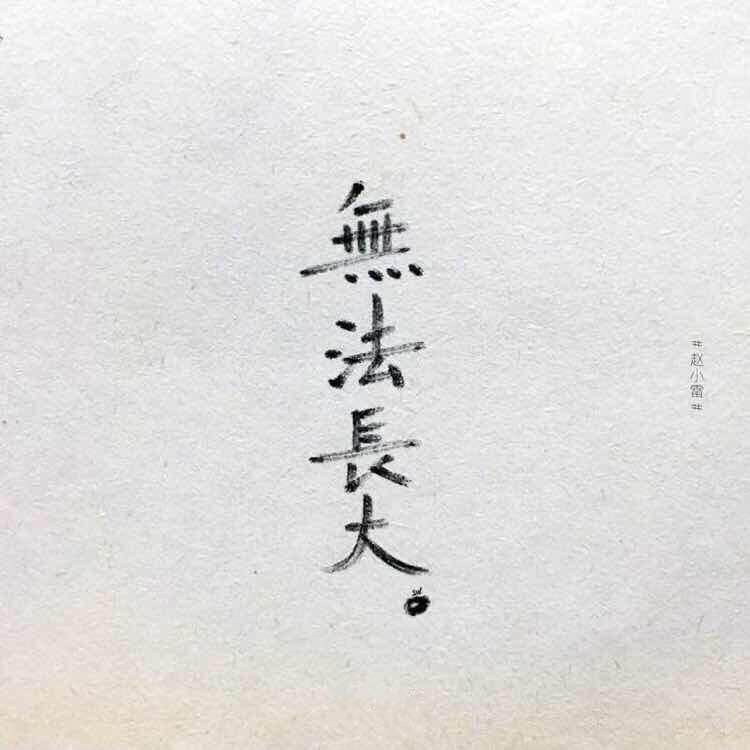 無法長大。
#赵小雷#